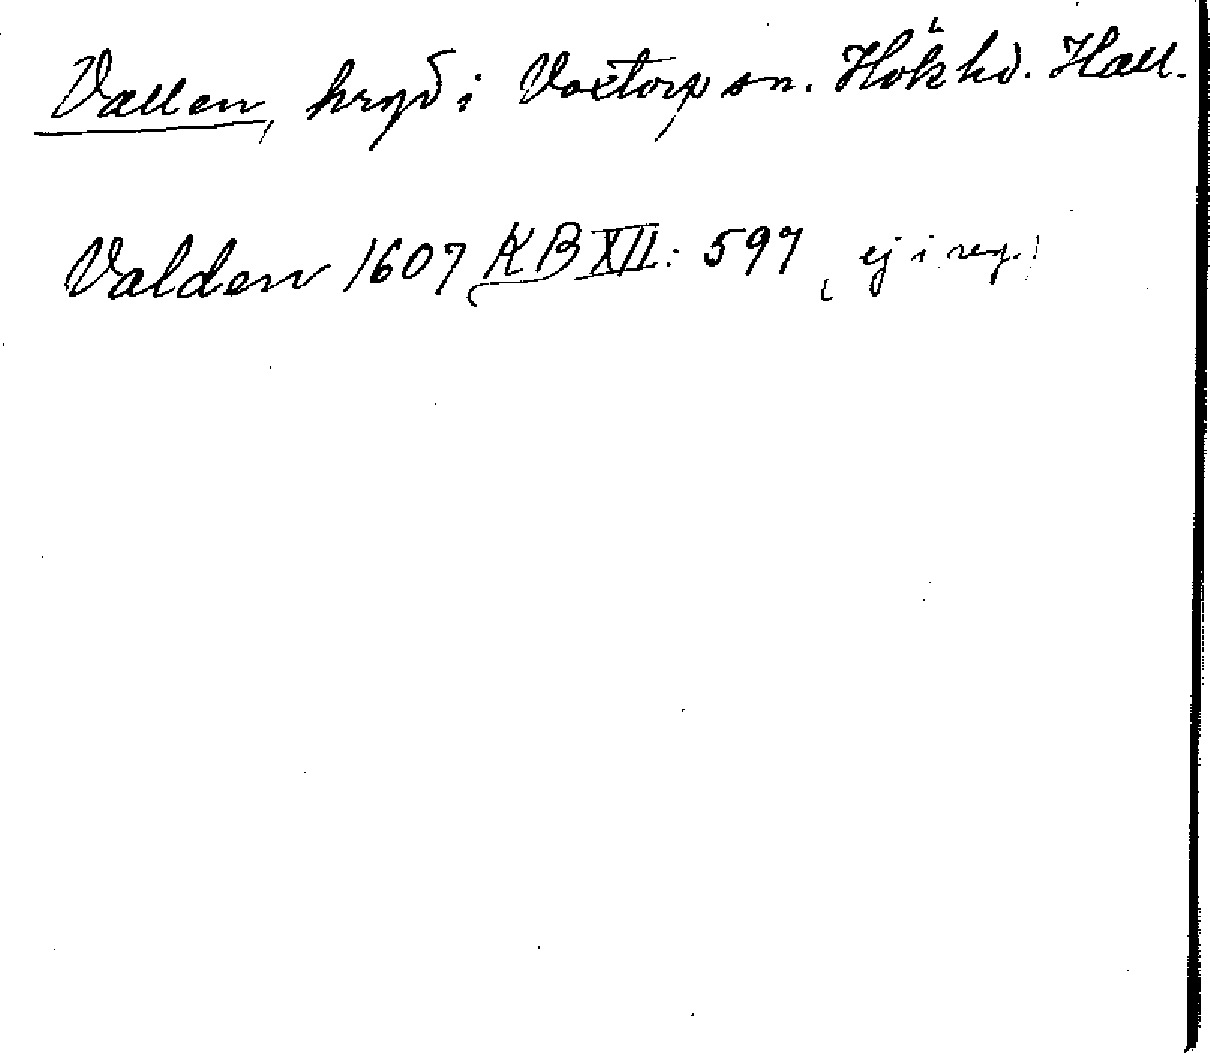 Vallen, hrgd i Voxtorp sn. Hök hd. Hall.
Valden 1607 KB XII: 597 (ej i reg.)